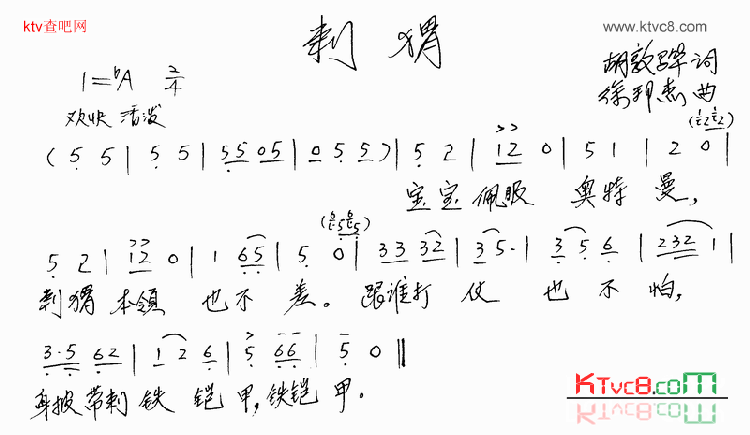 ktv查吧网
www.ktvc8.com
刺猬
1=bA 2/4
胡敦骅词
徐邦杰曲
欢快 活泼
( 5 5 | 5 5 | 55 05 | 0 5 5 ) | 5 2 | 12 0 | 5 1 | 2 0 |
宝宝佩服 奥特曼,
5 2 | 12 0 | 1 65 | 5 0 | 33 32 | 35· | 3 5 6 | 232 1 |
刺猬本领 也不差。跟谁打仗 也不怕,
3·5 62 | 1 2 6 | 5 66 | 5 0 ‖
身披带刺铁铠甲,铁铠甲。
KTvc8.com